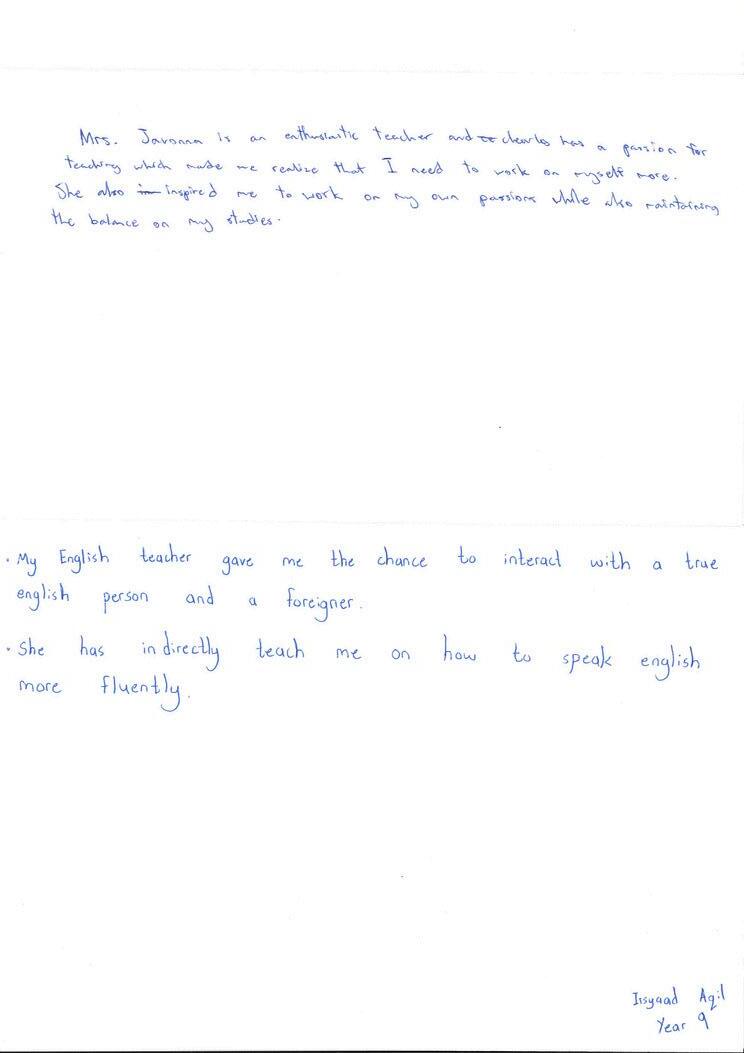 Mrs. Javonna is an enthusiastic teacher and clearly has a passion for
teaching which made me realize that I need to work on myself more.
She also inspired me to work on my own passions while also maintaining
the balance on my studies.
· My English teacher gave me the chance to interact with a true
english person and a foreigner.
· She has indirectly teach me on how to speak english
more fluently.
Irsyaad Aqil
Year 9